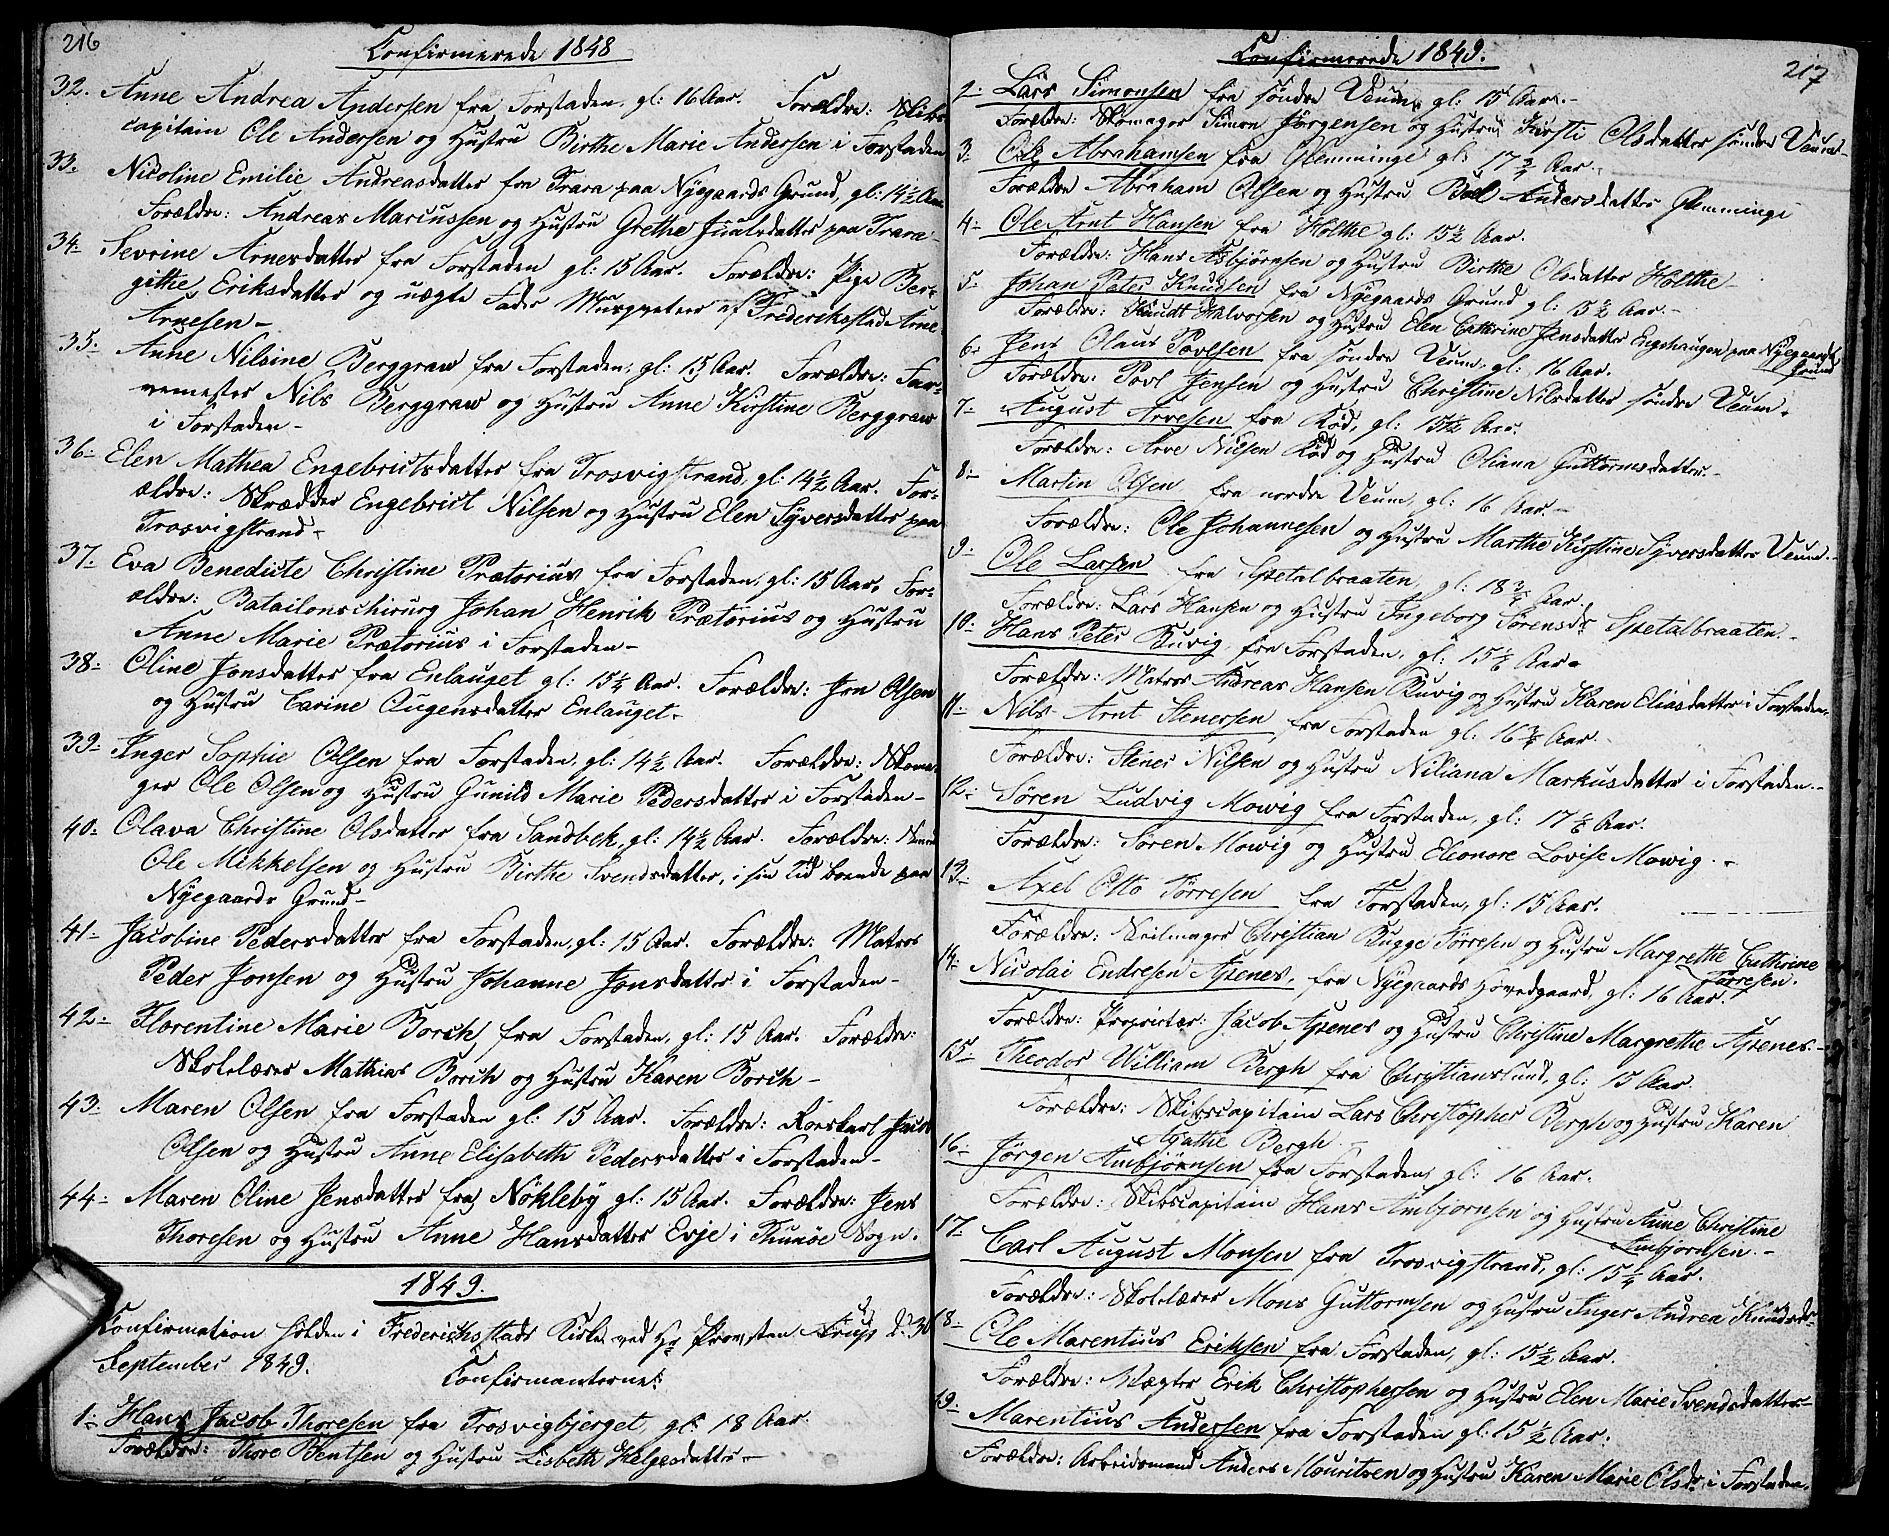 216
Confirmerede 1848
32. Anne Andrea Andersen fra Forstaden, gl: 16 Aar. Forældre: Skibs-
capitain Ole Andersen og Hustru Birthe Marie Andersen i Forstaden
33. Nicoline Emilie Andreasdatter fra Trara paa Nÿegaards Grund, gl: 14½ Aar
Forældre: Andreas Marcussen og Hustru Grethe datter paa Trara-
34. Sevrine Arnesdatter fra Forstaden gl: 15 Aar. Forældre: Pige Ber-
githe Eriksdatter og uægte Fader Musqueteer af Frederikstad Arne
Arnesen-
35. Anne Nilsine Berggraw fra Forstaden, gl: 15 Aar. Forældre: Far-
vemester Nils Berggraw og Hustru Anne Kirstine Berggraw
i Forstaden-
36. Elen Mathea Engebrictsdatter fra Trosvigstrand, gl: 14½ Aar. For-
ældre: Skrædder Engebrict Nilsen og Hustru Elen Sÿversdatter paa
Trosvigstrand-
37. Eva Benedicte Christine Prætorius fra Forstaden, gl: 15 Aar. For-
ældre: Batailonschirurg Johan Henrik Prætorius og Hustru
Anne Marie Prætorius i Forstaden-
38. Oline Jonsdatter fra Enlauget gl: 15¼ Aar. Forældre: Jon Olsen
og Hustru Carine Augensdatter Enlauget.
39. Inger Sophie Olsen fra Forstaden, gl: 14½ Aar. Forældre: Skoma-
ger Ole Olsen og Hustru Gunild Marie Pedersdatter i Forstaden-
40. Olava Christine Olsdatter fra Sandbek, gl: 14½ Aar. Forældre:
Ole Mikkelsen og Hustru Birthe Svendsdatter, i sin Tid boende paa
Nÿegaards Grund-
41. Jacobine Pedersdatter fra Forstaden, gl: 15 Aar. Forældre: Matros
Peder Jonsen og Hustru Johanne Jonsdatter i Forstaden-
42. Florentine Marie Borch, fra Forstaden, gl: 15 Aar. Forældre:
Skolelærer Mathias Borch og Hustru Karen Borch-
43. Maren Olsen fra Forstaden gl: 15 Aar. Forældre: Roerskarl Jacob
Olsen og Hustru Anne Elisabeth Pedersdatter i Forstaden-
44. Maren Oline Jensdatter fra Nökleby gl: 15 Aar. Forældre: Jens
Thoresen og Hustru Anne Hansdatter Evje i Thunöe Sogn.
1849.
Confirmation holden i Frederichstads Kirke ved Hr Provsten Arup d: 30
September 1849.
Confirmanterne:
1. Hans Jacob Thoresen fra Trosvigbjerget gl: 18 Aar.
Forældre: Thore Bentsen og Hustru Lisbeth Helgesdatter-
Confirmerede 1849.
217
2. Lars Simonsen fra söndre Veum, gl: 15 Aar.-
Forældre: Skomager Simon Jörgensen og Hustru Kirsti Olsdatter söndre Veum-
3. Ole Abrahamsen fra Glemminge gl: 17¾ Aar.
Forældre Abraham Olsen og Hustru Andersdatter Glemminge
4. Ole Arnt Hansen fra Holthe gl: 15½ Aar.
Forældre: Hans Asbjörnsen og Hustru Birthe Olsdatter Holthe-
5. Johan Peter Knudsen fra Nÿegaards Grund gl: 15½ Aar.-
Forældre: Knudt Halvorsen og Hustru Elen Cathrine Jensdatter Engehaugen paa Nÿegaards
Grund
6. Jens Olaus Povelsen fra söndre Veum, gl: 16 Aar.
Forældre: Povl Jensen og Hustru Christine Nilsdatter söndre Veum.
7. August Arvesen fra Röd, gl: 15½ Aar.
Forældre: Arve Nilsen Röd og Hustru Oliana Guttormsdatter.-
8. Martin Olsen fra nordre Veum, gl: 16 Aar.-
Forældre: Ole Johannesen og Hustru Marthe Kirstine Sÿversdatter Veum.-
9. Ole Larsen fra Spetalbraaten, gl: 18¾ Aar.
Forældre: Lars Hansen og Hustru Ingeborg Sörensdr Spetalbraaten.-
10. Hans Peter Ruvig, fra Forstaden, gl: 15½ Aar.
Forældre: Matros Andreas Hansen Ruvig og Hustru Karen Eliasdatter i Forstaden.
11. Nils Arnt Stenersen, fra Forstaden gl: 16¾ Aar.
Forældre: Stener Nilsen og Hustru Niliana Markusdatter i Forstaden.-
12. Sören Ludvig Mowig fra Forstaden, gl: 17½ Aar.
Forældre: Sören Mowig og Hustru Eleonore Lovise Mowig.-
13. Axel Otto Törresen fra Forstaden, gl: 15 Aar.
Forældre: Seilmager Christian Bugge Törresen og Hustru Margrethe Cathrine
Törresen.
14. Nicolai Endresen Apenes, fra Nÿegaards Hovedgaard, gl: 16 Aar.
Forældre: Proprietær: Jacob Apenes og Hustru Christine Margrethe Apenes.-
15. Theodor William Bergh fra Christianslund, gl: 15 Aar.
Forældre: Skibscapitain Lars Christopher Bergh og Hustru Karen
Agathe Bergh.-
16. Jörgen Ambjörnsen fra Forstaden, gl: 16 Aar.
Forældre: Skibscapitain Hans Ambjörnsen og Hustru Anne Christine
Ambjörnsen.-
17. Carl August Monsen fra Trosvigstrand, gl: 15¼ Aar.
Forældre: Skolelærer Mons Guttormsen og Hustru Inger Andrea Knudsd-
18. Ole Marentius Eriksen fra Forstaden, gl: 15½ Aar.
Forældre: Vægter Erik Christophersen og Hustru Elen Marie Svendsdatter-
19. Marentius Andersen fra Forstaden gl: 15½ Aar.
Forældre: Arbeidsmand Anders Mouritzen og Hustru Karen Marie Olsdr i Forstaden.